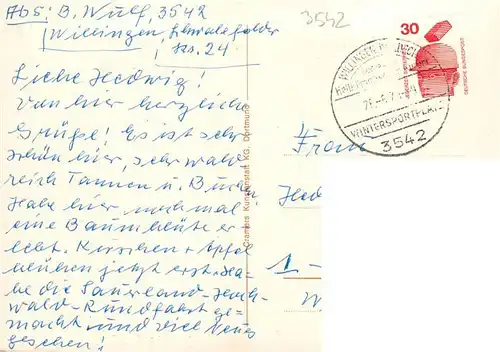 Abs: B. Wulf, 3542
Willingen, Schwalefelder
Str. 24
3542
30
DEUTSCHE BUNDESPOST
WINTERSPORTPLATZ
3542
Liebe Hedwig!
Von hier herzliche
Grüße! Es ist sehr
schön hier, sehr wald
reich Tannen u. Buchen
Habe hier nochmal
eine Baumblüte er-
lebt. Kirschen + Äpfel
blühen jetzt erst. Ha-
be die Sauerland-Hoch-
wald-Rundfahrt ge-
macht und viel Neues
gesehen!
Cramers Kunstanstalt KG, Dortmund
Frau
Hed
1 -
W